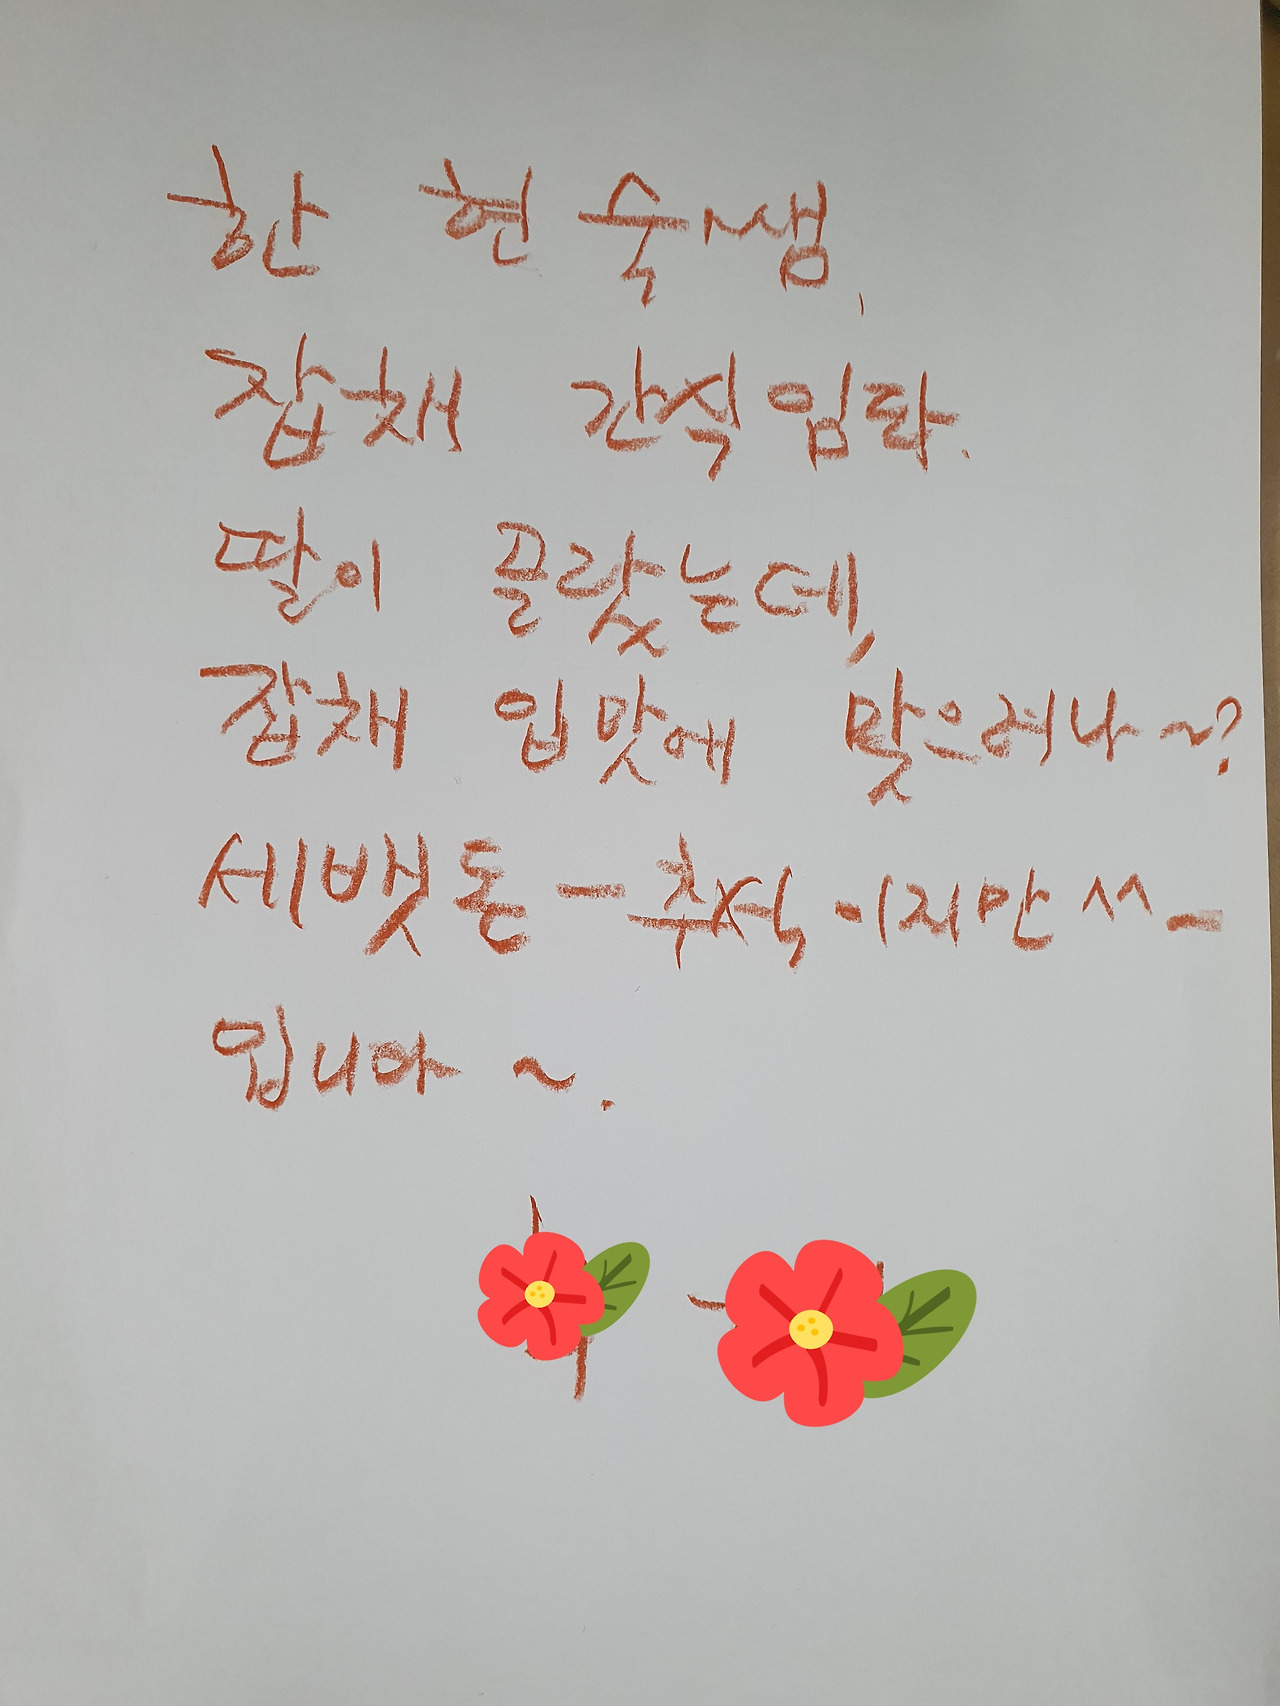 한 현숙쌤,
잡채 간식입다.
딸이 골랐는데,
잡채 입맛에 맞으려나~?
세뱃돈-추석이지만^^-
입니다~.